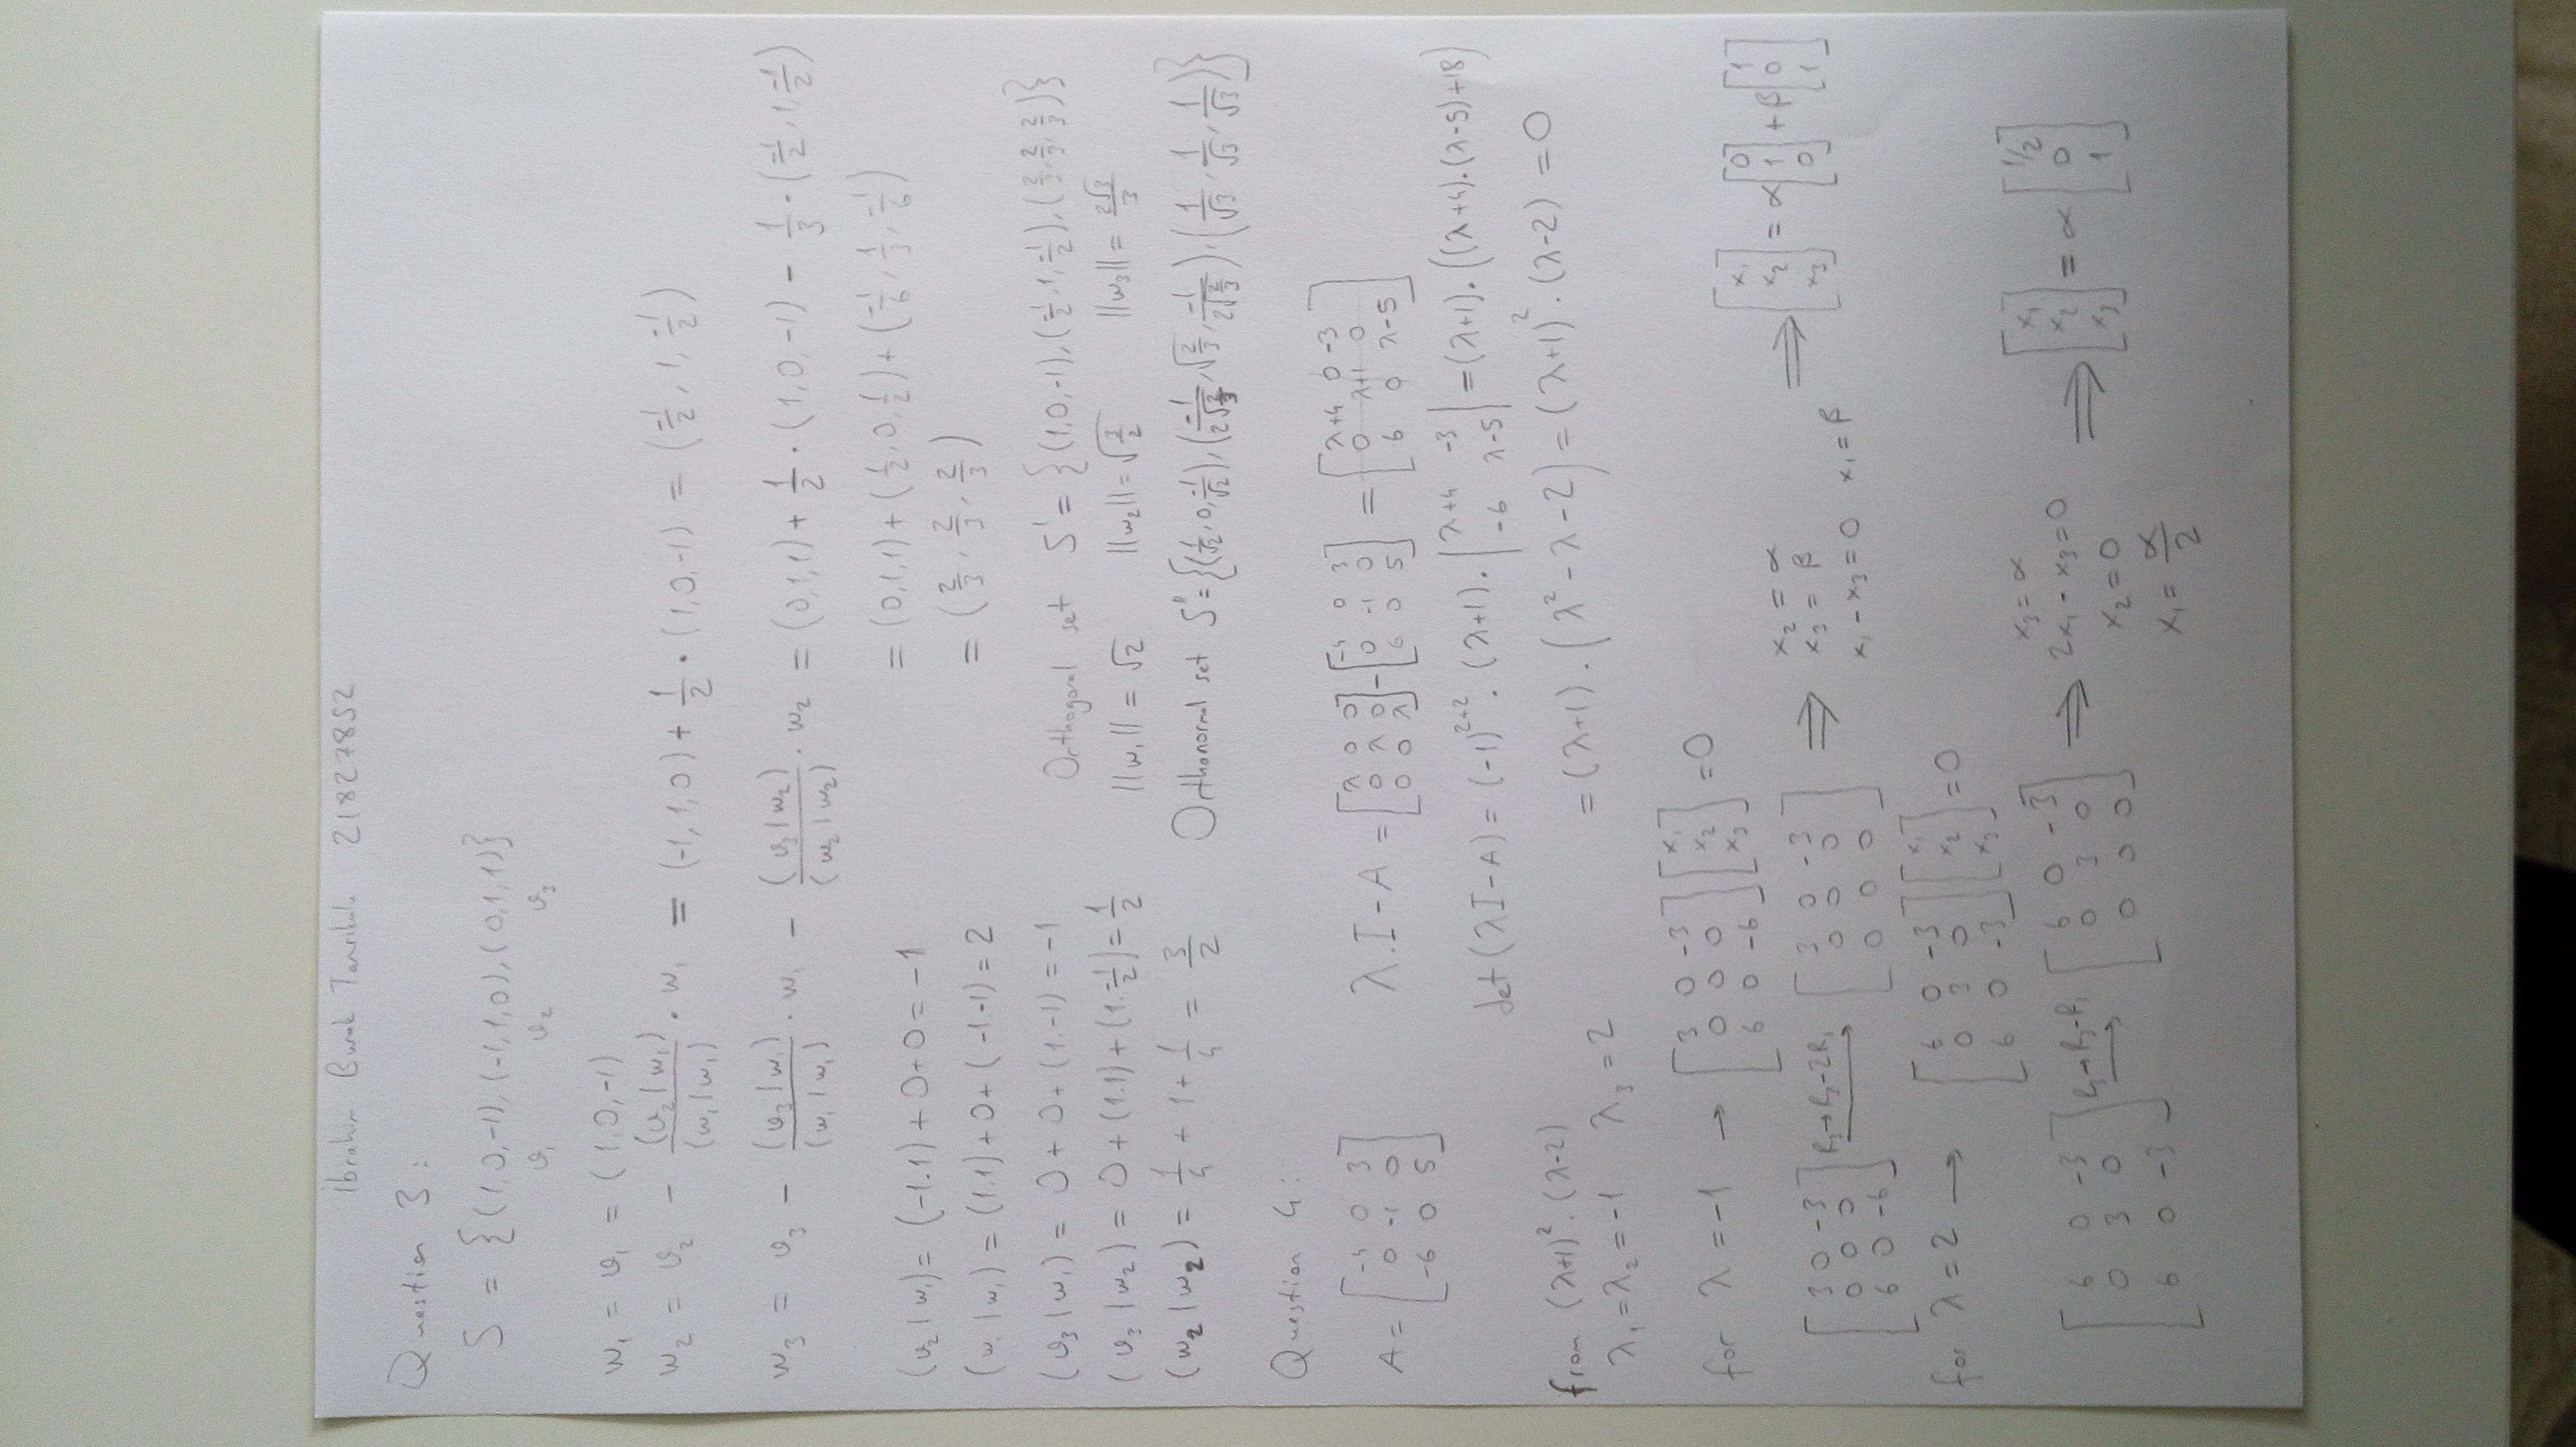 İbrahim Burak Tanrıkulu 21827852
Question 3:
S = {(1,0,-1),(-1,1,0),(0,1,1)}
v₁ v₂ v₃
w₁ = v₁ = (1,0,-1)
w₂ = v₂ - (v₂|w₁)/(w₁|w₁) · w₁ = (-1,1,0) + 1/2 · (1,0,-1) = (-1/2, 1, -1/2)
w₃ = v₃ - (v₃|w₁)/(w₁|w₁) · w₁ - (v₃|w₂)/(w₂|w₂) · w₂ = (0,1,1) + 1/2 · (1,0,-1) - 1/3 · (-1/2, 1, -1/2)
= (0,1,1) + (1/2, 0, 1/2) + (-1/6, 1/3, -1/6)
= (2/3, 2/3, 2/3)
(v₂|w₁) = (-1.1) + 0 + 0 = -1
(w₁|w₁) = (1.1) + 0 + (-1.-1) = 2
(v₃|w₁) = 0 + 0 + (1.-1) = -1
(v₃|w₂) = 0 + (1.1) + (1.-1/2) = 1/2
(w₂|w₂) = 1/4 + 1 + 1/4 = 3/2
Orthogonal set S' = {(1,0,-1),(-1/2,1,-1/2),(2/3,2/3,2/3)}
||w₁|| = √2 ||w₂|| = √(3/2) ||w₃|| = 2√3/3
Orthonormal set S'' = {(1/√2, 0, -1/√2), (-1/2√(3/2), √(2/3), -1/2√(3/2)), (1/√3, 1/√3, 1/√3)}
Question 4:
A = [-4 0 3; 0 -1 0; -6 0 5] λ.I - A = [λ 0 0; 0 λ 0; 0 0 λ] - [-4 0 3; 0 -1 0; 6 0 5] = [λ+4 0 -3; 0 λ+1 0; 6 0 λ-5]
det(λI-A) = (-1)²⁺² . (λ+1) . |λ+4 -3; -6 λ-5| = (λ+1) . ((λ+4).(λ-5)+18)
= (λ+1) . (λ²-λ-2) = (λ+1)² . (λ-2) = 0
from (λ+1)² . (λ-2)
λ₁ = λ₂ = -1 λ₃ = 2
for λ = -1 → [3 0 -3; 0 0 0; 6 0 -6] [x₁; x₂; x₃] = 0
[3 0 -3; 0 0 0; 6 0 -6] R₃→R₃-2R₁ [3 0 -3; 0 0 0; 0 0 0] ⟹ x₂ = α
x₃ = β
x₁ - x₃ = 0 x₁ = β
⟹ [x₁; x₂; x₃] = α [0; 1; 0] + β [1; 0; 1]
for λ = 2 → [6 0 -3; 0 3 0; 6 0 -3] [x₁; x₂; x₃] = 0
[6 0 -3; 0 3 0; 6 0 -3] R₃→R₃-R₁ [6 0 -3; 0 3 0; 0 0 0] ⟹ x₃ = α
2x₁ - x₃ = 0
x₂ = 0
x₁ = α/2
⟹ [x₁; x₂; x₃] = α [1/2; 0; 1]